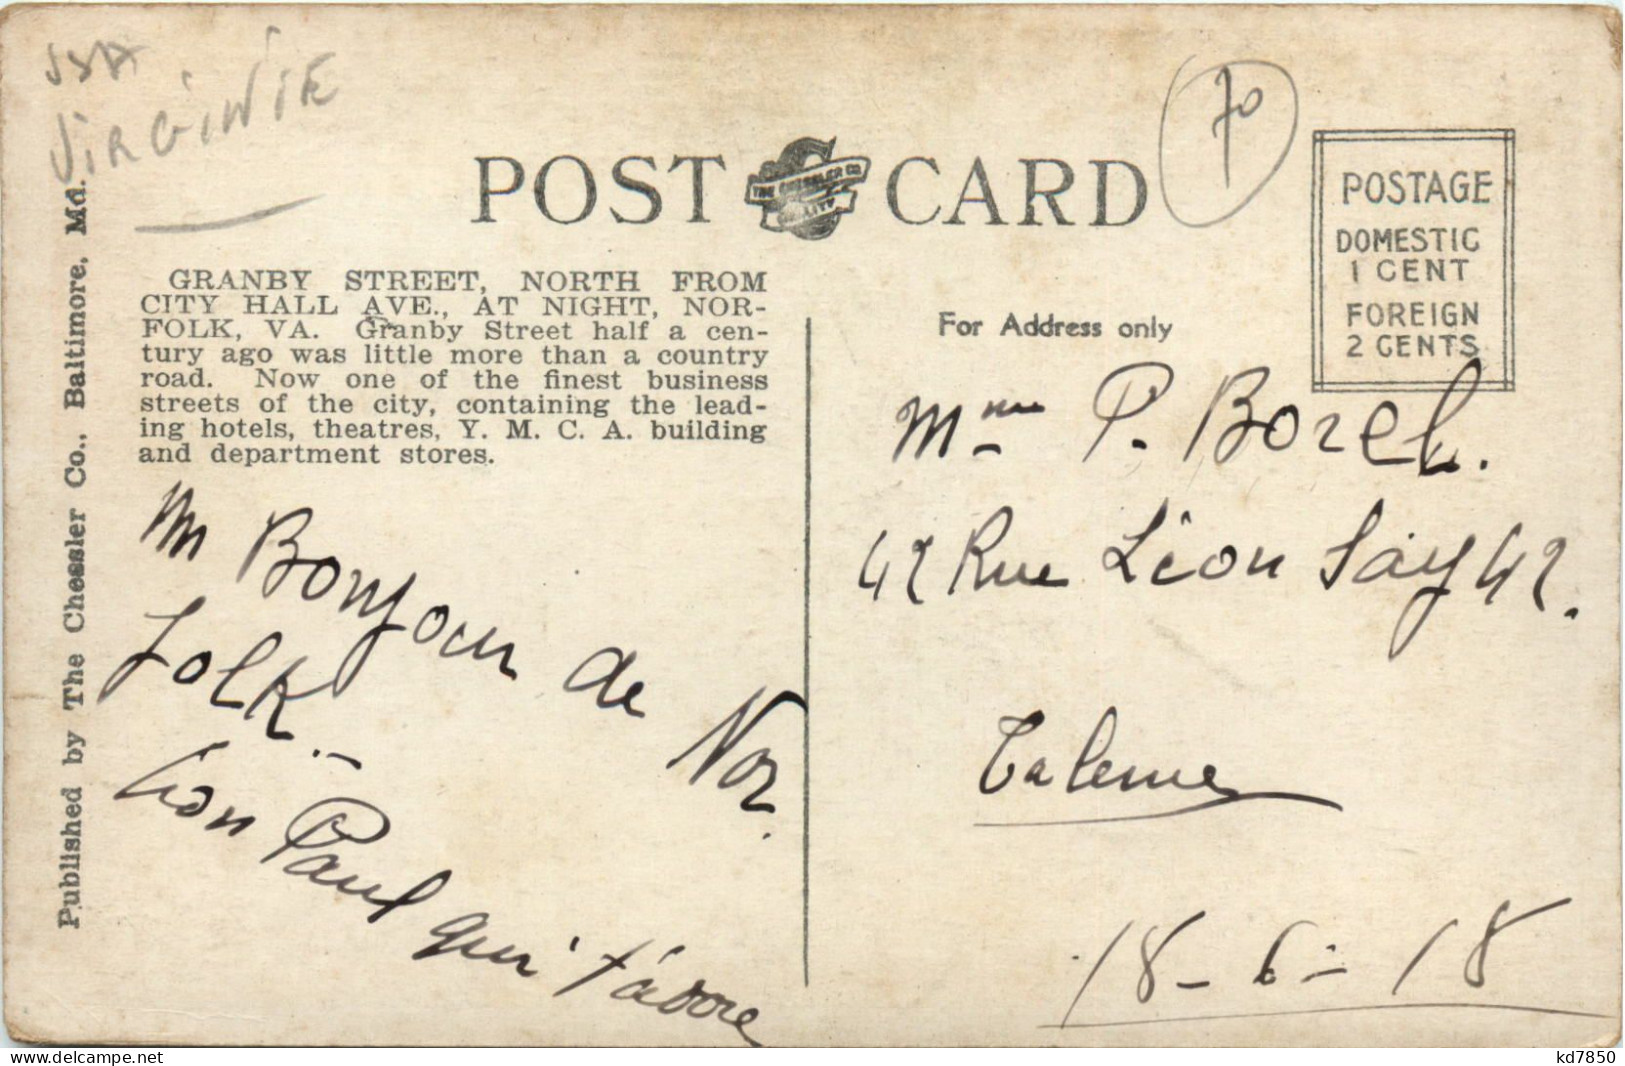 USA
VIRGINIE
70
POST CARD
THE CHESSLER CO.
QUALITY
POSTAGE
DOMESTIC
1 CENT
FOREIGN
2 CENTS
GRANBY STREET, NORTH FROM
CITY HALL AVE., AT NIGHT, NOR-
FOLK, VA. Granby Street half a cen-
tury ago was little more than a country
road. Now one of the finest business
streets of the city, containing the lead-
ing hotels, theatres, Y. M. C. A. building
and department stores.
Published by The Chessler Co., Baltimore, Md.
Un Bonjour de Nor
folk.-
Ton Paul qui t'adore
For Address only
Mme P. Borel.
42 Rue Léon Say 42.
Talence
18-6-18
www.delcampe.net
kd7850